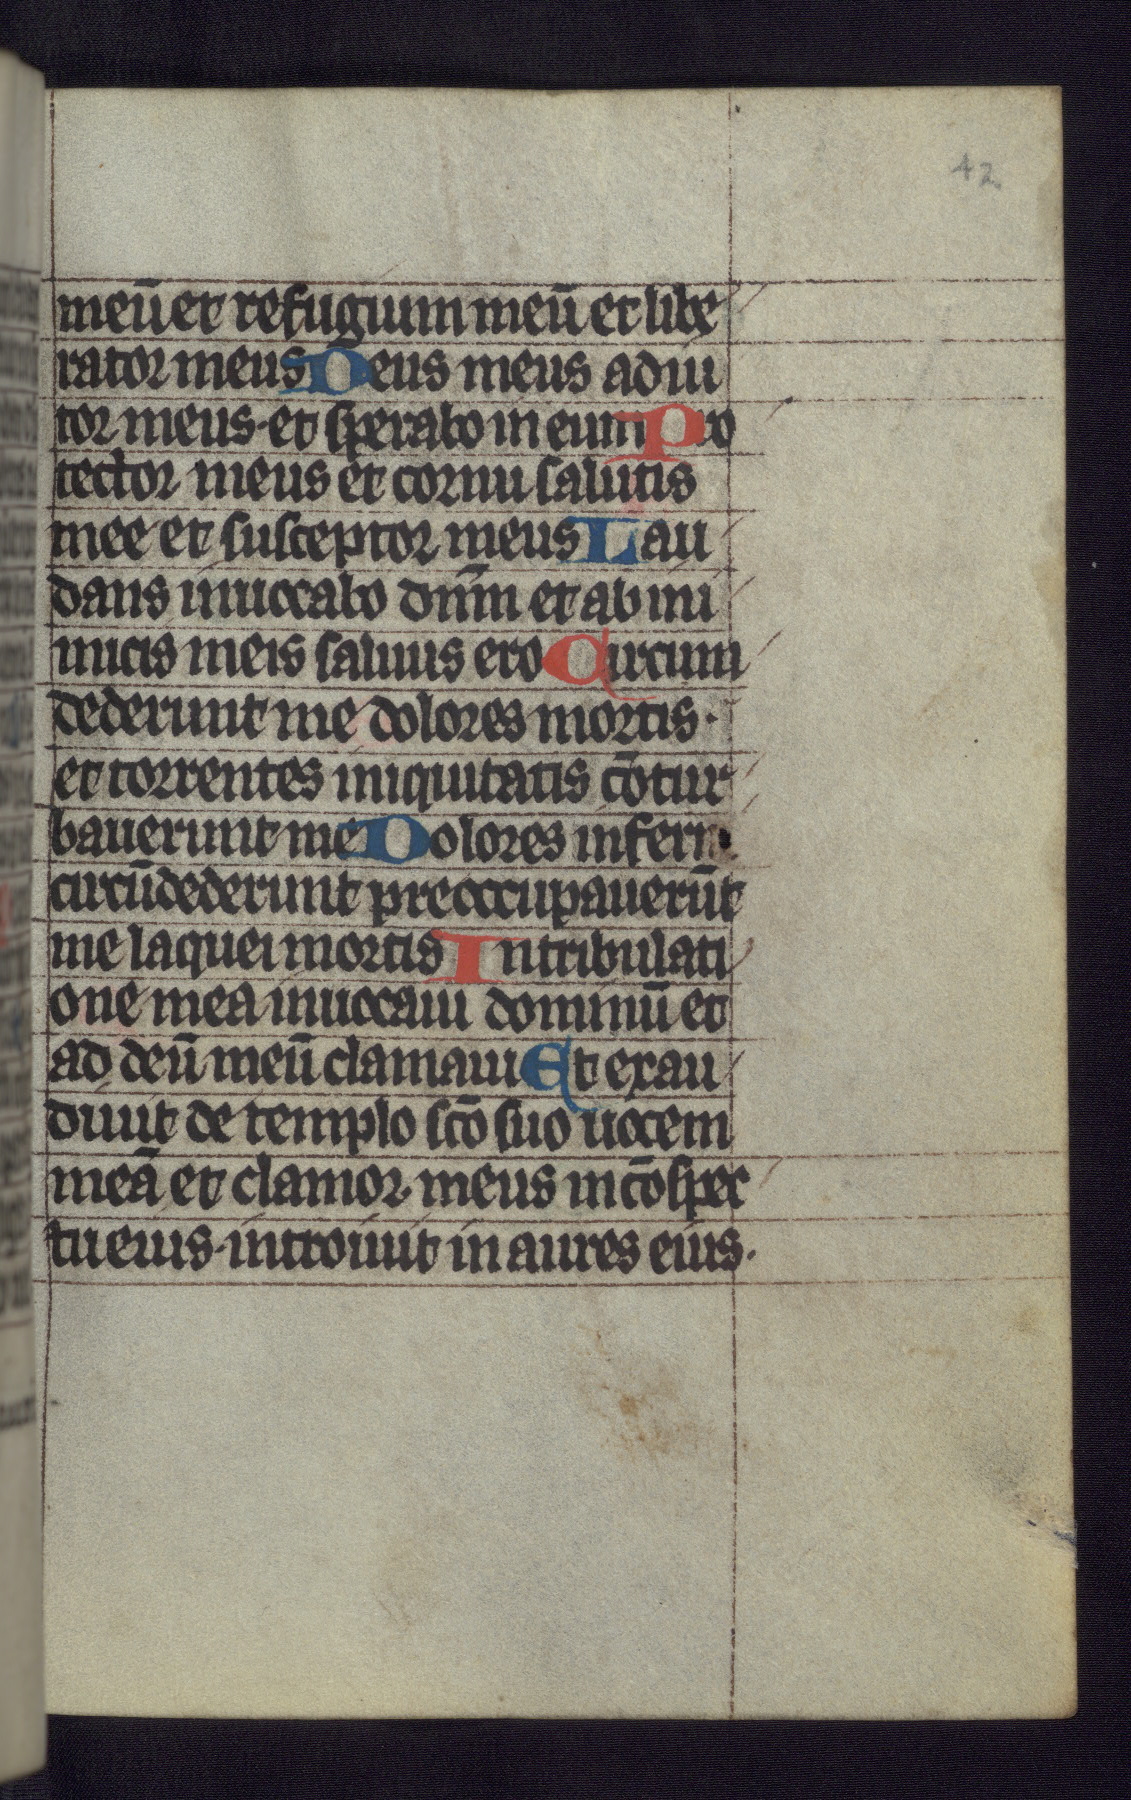 42
meū et refugium meū et libe
rator meus Deus meus adiu
tor meus·et sperabo in eum Pro
tector meus et cornu salutis
mee et susceptor meus Lau
dans inuocabo dn̄m et ab ini
micis meis saluus ero Circum
dederunt me dolores mortis·
et torrentes iniquitatis cōtur
bauerunt me Dolores inferni
circūdederunt preoccupauerūt
me laquei mortis In tribulati
one mea inuocaui dominū et
ad deū meū clamaui Et exau
diuit de templo scō suo uocem
meā et clamor meus in cōspec
tu eius·introiuit in aures eius·